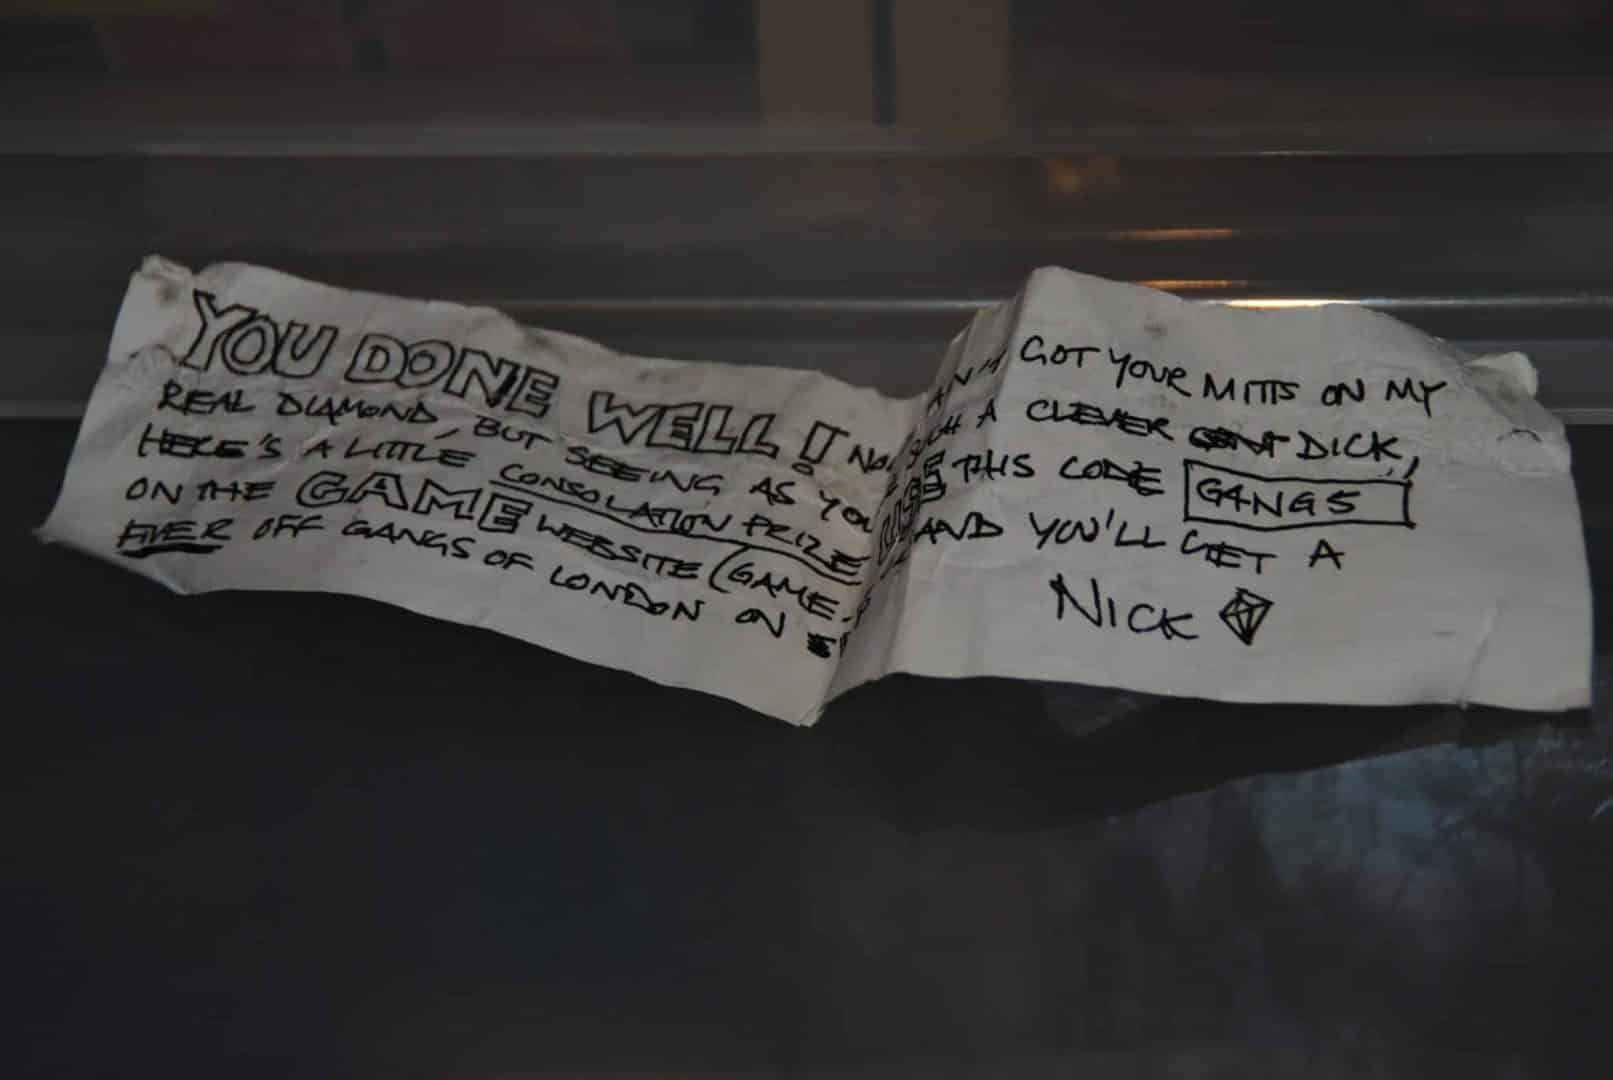 YOU DONE WELL! NO, GOT YOUR MITTS ON MY
REAL DIAMOND, BUT SEEING AS YOU A CLEVER DICK,
HERE'S A LITTLE CONSOLATION PRIZE USE THIS CODE G4NG5
ON THE GAME WEBSITE (GAME. AND YOU'LL GET A
FIVER OFF GANGS OF LONDON ON
NICK